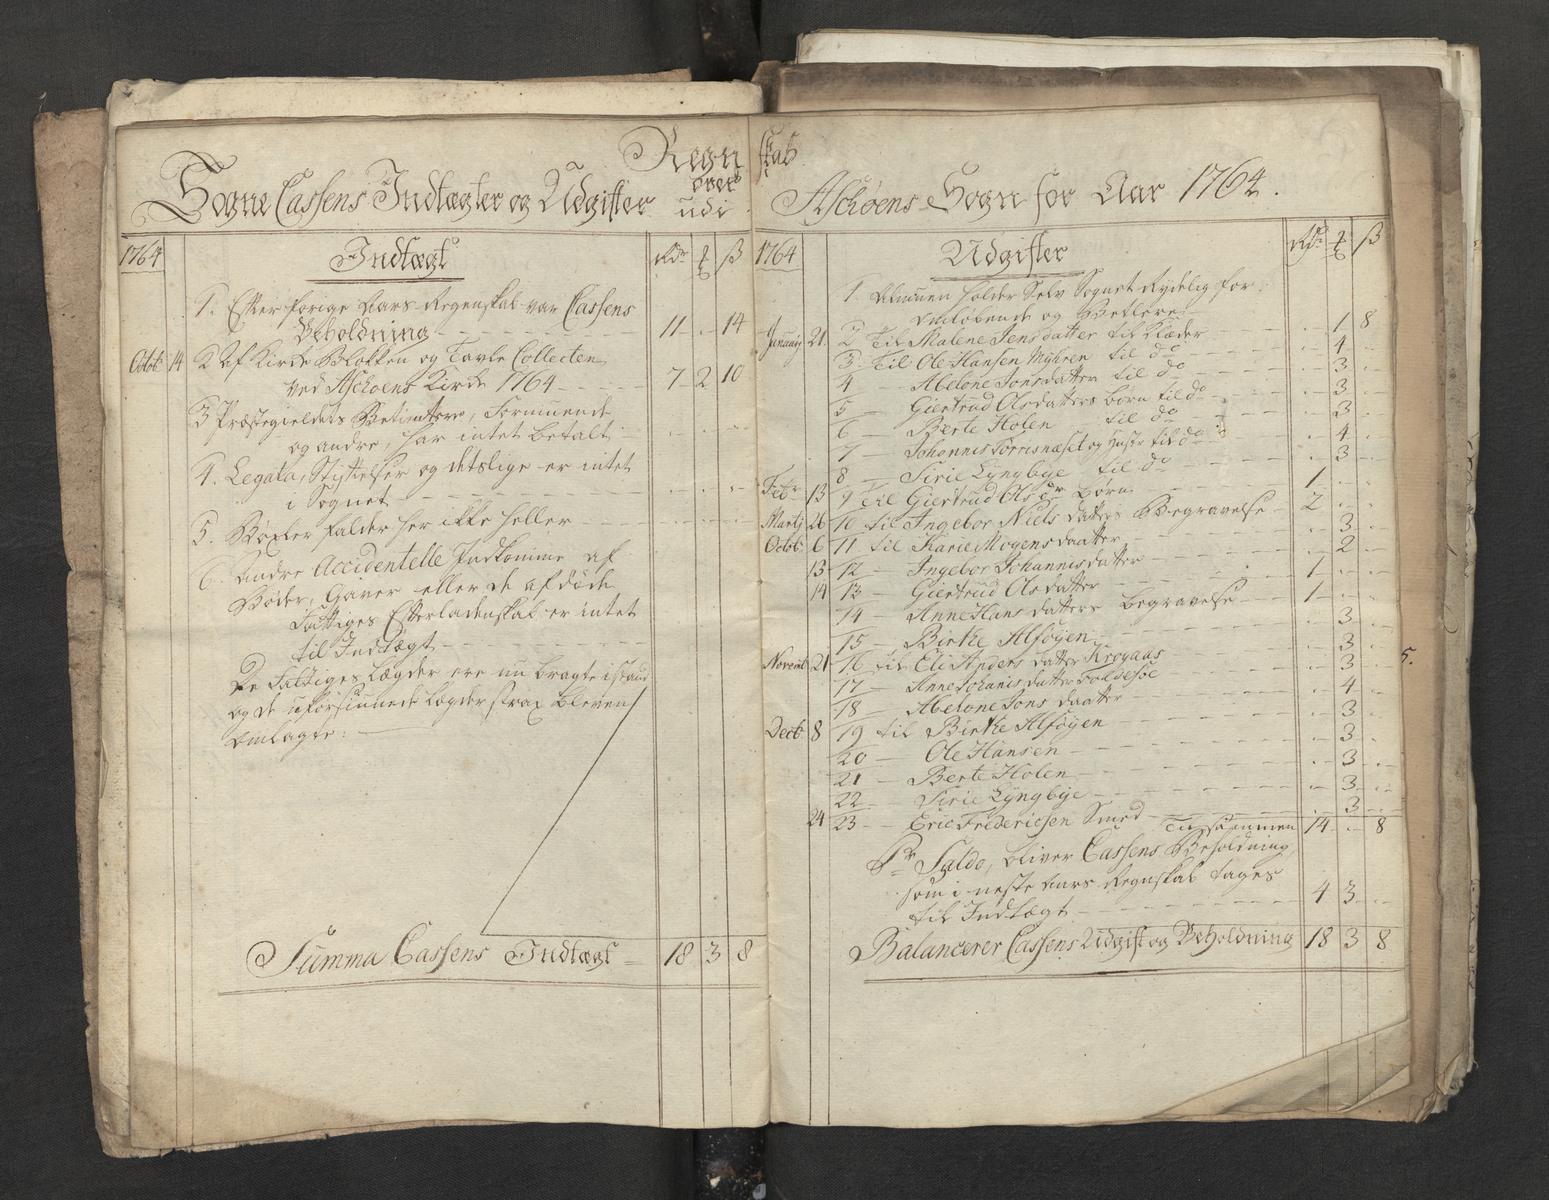 Regn skab
over
Sogne Cassens Indtægter og Udgifter udi Aschøens Sogn for Aar 1764.
1764 Indtægt Rdr ß
1. Efter forige Aars Regenskab var Cassens
Beholdning 11 . 14
Octob: 14 2 Af Kirke Blokken og Tavle Collecten
ved Aschøens Kirke 1764 7 2 10
3 Præstegieldets Betientere, Formuende
og andre, har intet betalt
4. Legata, Stiftelser og detslige er intet
i Sognet
5. Bøxler falder her ikke heller
6. Andre Accidentelle Indkomme af
Bøder, Gaver eller de afdøde
Fattiges Efterladenskab er intet
til Indtægt
De Fattiges Lægder ere nu bragte i stand
og de uforsiunede Lægder strax bleven
omlagte.
Summa Cassens Indtægt 18 3 8
1764 Udgifter Rdr ß
1. Almuen holder Selv Sognet Rydelig for
omløbende og Betlere 1 8
January 21. 2 Til Malene Jensdatter til Klæder 4
3. Til Ole Hansen Myhren til do 3
4 — Abelone Jonsdatter til do 3
5 — Giertrud Olsdatters børn til do 3
6 — Berte Holen til do 4
7 — Johannis Torrisnæset og Hustr til do 3
8 — Sirie Lyngbye til do
Febr 13 9 Til Giertrud Olsdr Børn 1
Martj 26 10 til Ingebor Niels datters Begravelse 2
Octob: 6 11 til Karie Mogens daatter 3
13 12 — Ingebor Johannis datter 2
14 13 — Giertrud Olsdatter 1
14 — Anne Hans datters begravelse 1
15 — Birthe Alføyen 3
Novemb 21 16 til Eli Anders datter Krogaas 3
17 — Anne Johanis datter 3
18 — Abelone Jons daatter 4
Decb 8 19 til Birthe Alføyen 3
20 — Ole Hansen 3
21 — Berte Holen 3
22 — Sirie Lyngbye 3
24 23 — Eric Fredericsen Smed 3
Til sammen 14 . 8
Pr Saldo, bliver Cassens Beholdning,
som i neste Aars Regnskab tages
til Indtægt 4 3
Balancerer Cassens Udgift og Beholdning 18 3 8
5.